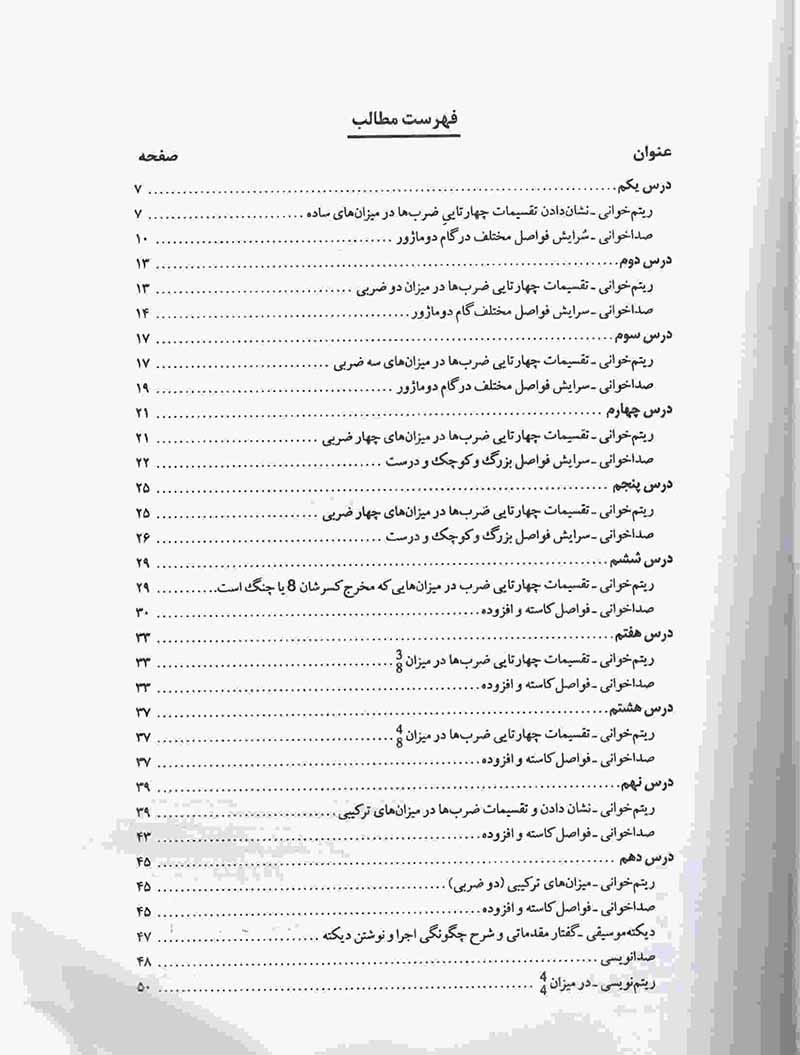 فهرست مطالب
عنوان صفحه
درس یکم ........ ۷
ریتم‌خوانی ـ نشان‌دادن تقسیمات چهارتاییِ ضرب‌ها در میزان‌های ساده ........ ۷
صداخوانی ـ سُرایش فواصل مختلف در گام دوماژور ........ ۱۰
درس دوم ........ ۱۳
ریتم‌خوانی ـ تقسیمات چهارتایی ضرب‌ها در میزان دو ضربی ........ ۱۳
صداخوانی ـ سرایش فواصل مختلف گام دوماژور ........ ۱۴
درس سوم ........ ۱۷
ریتم‌خوانی ـ تقسیمات چهارتایی ضرب‌ها در میزان‌های سه ضربی ........ ۱۷
صداخوانی ـ سرایش فواصل مختلف در گام دوماژور ........ ۱۹
درس چهارم ........ ۲۱
ریتم‌خوانی ـ تقسیمات چهارتایی ضرب‌ها در میزان‌های چهار ضربی ........ ۲۱
صداخوانی ـ سرایش فواصل بزرگ و کوچک و درست ........ ۲۲
درس پنجم ........ ۲۵
ریتم‌خوانی ـ تقسیمات چهارتایی ضرب‌ها در میزان‌های چهار ضربی ........ ۲۵
صداخوانی ـ سرایش فواصل بزرگ و کوچک و درست ........ ۲۶
درس ششم ........ ۲۹
ریتم‌خوانی ـ تقسیمات چهارتایی ضرب در میزان‌هایی که مخرج کسرشان 8 یا چنگ است ........ ۲۹
صداخوانی ـ فواصل کاسته و افزوده ........ ۳۰
درس هفتم ........ ۳۳
ریتم‌خوانی ـ تقسیمات چهارتایی ضرب‌ها در میزان 3/8 ........ ۳۳
صداخوانی ـ فواصل کاسته و افزوده ........ ۳۳
درس هشتم ........ ۳۷
ریتم‌خوانی ـ تقسیمات چهارتایی ضرب‌ها در میزان 4/8 ........ ۳۷
صداخوانی ـ فواصل کاسته و افزوده ........ ۳۷
درس نهم ........ ۳۹
ریتم‌خوانی ـ نشان دادن و تقسیمات ضرب‌ها در میزان‌های ترکیبی ........ ۳۹
صداخوانی ـ فواصل کاسته و افزوده ........ ۴۳
درس دهم ........ ۴۵
ریتم‌خوانی ـ میزان‌های ترکیبی (دو ضربی) ........ ۴۵
صداخوانی ـ فواصل کاسته و افزوده ........ ۴۵
دیکته‌موسیقی ـ گفتار مقدماتی و شرح چگونگی اجرا و نوشتن دیکته ........ ۴۷
صدانویسی ........ ۴۸
ریتم‌نویسی ـ در میزان 4/4 ........ ۵۰